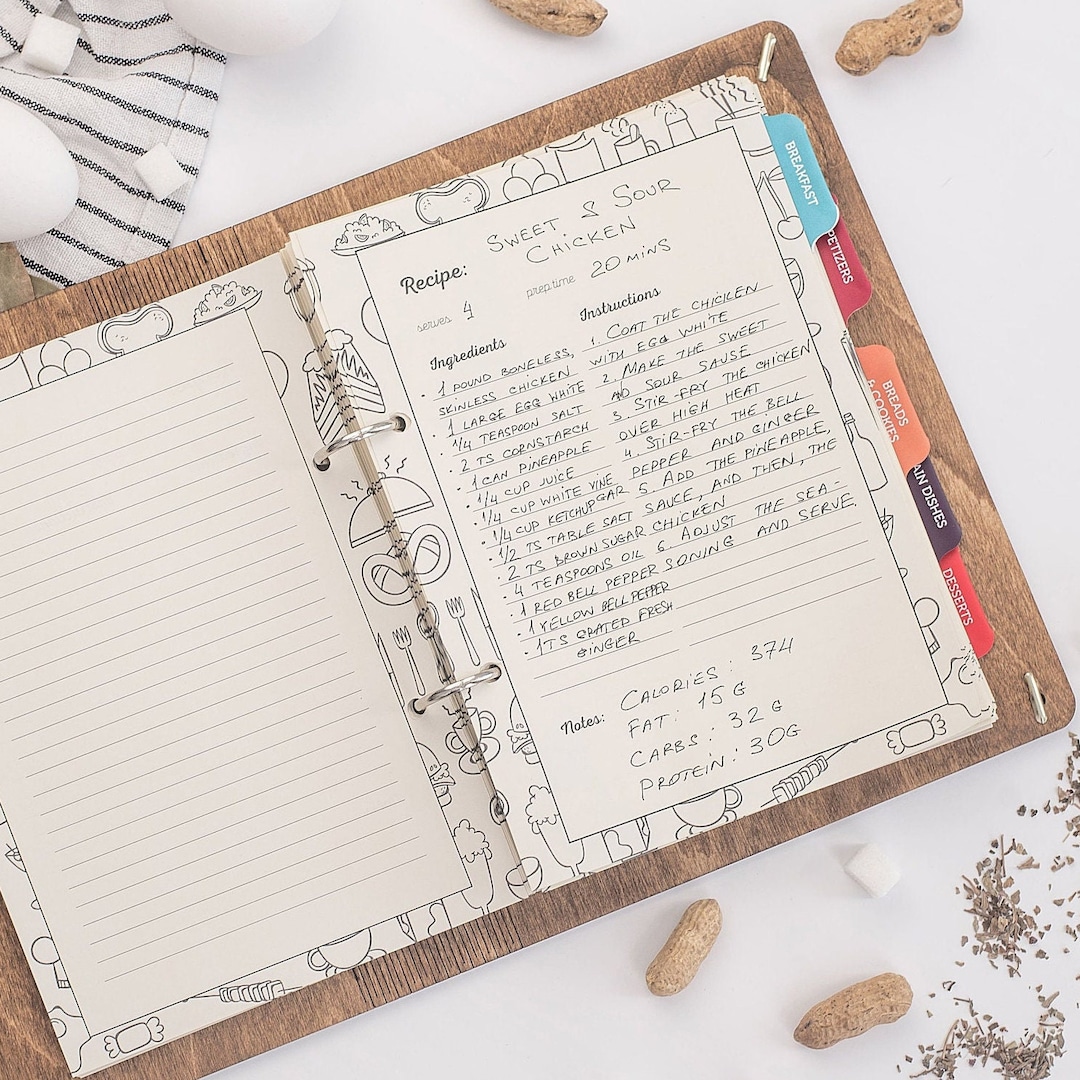 SWEET & SOUR
CHICKEN
Recipe:
serves 4
prep time 20 MINS
Ingredients
• 1 POUND BONELESS,
SKINLESS CHICKEN
• 1 LARGE EGG WHITE
• 1/4 TEASPOON SALT
• 2 TS CORNSTARCH
• 1 CAN PINEAPPLE
• 1/4 CUP JUICE
• 1/4 CUP WHITE VINEGAR
• 1/4 CUP KETCHUP
• 1/2 TS TABLE SALT
• 2 TS BROWN SUGAR
• 4 TEASPOONS OIL
• 1 RED BELL PEPPER
• 1 YELLOW BELL PEPPER
• 1TS GRATED FRESH
GINGER
Instructions
1. COAT THE CHICKEN
WITH EGG WHITE
2. MAKE THE SWEET
AND SOUR SAUSE
3. STIR-FRY THE CHICKEN
OVER HIGH HEAT
4. STIR-FRY THE BELL
PEPPER AND GINGER
5. ADD THE PINEAPPLE,
SAUCE, AND THEN, THE
CHICKEN
6. ADJUST THE SEA-
SONING AND SERVE.
Notes:
CALORIES: 374
FAT: 15 G
CARBS: 32 G
PROTEIN: 30G
BREAKFAST
PETIZERS
BREADS
& COOKIES
AIN DISHES
DESSERTS